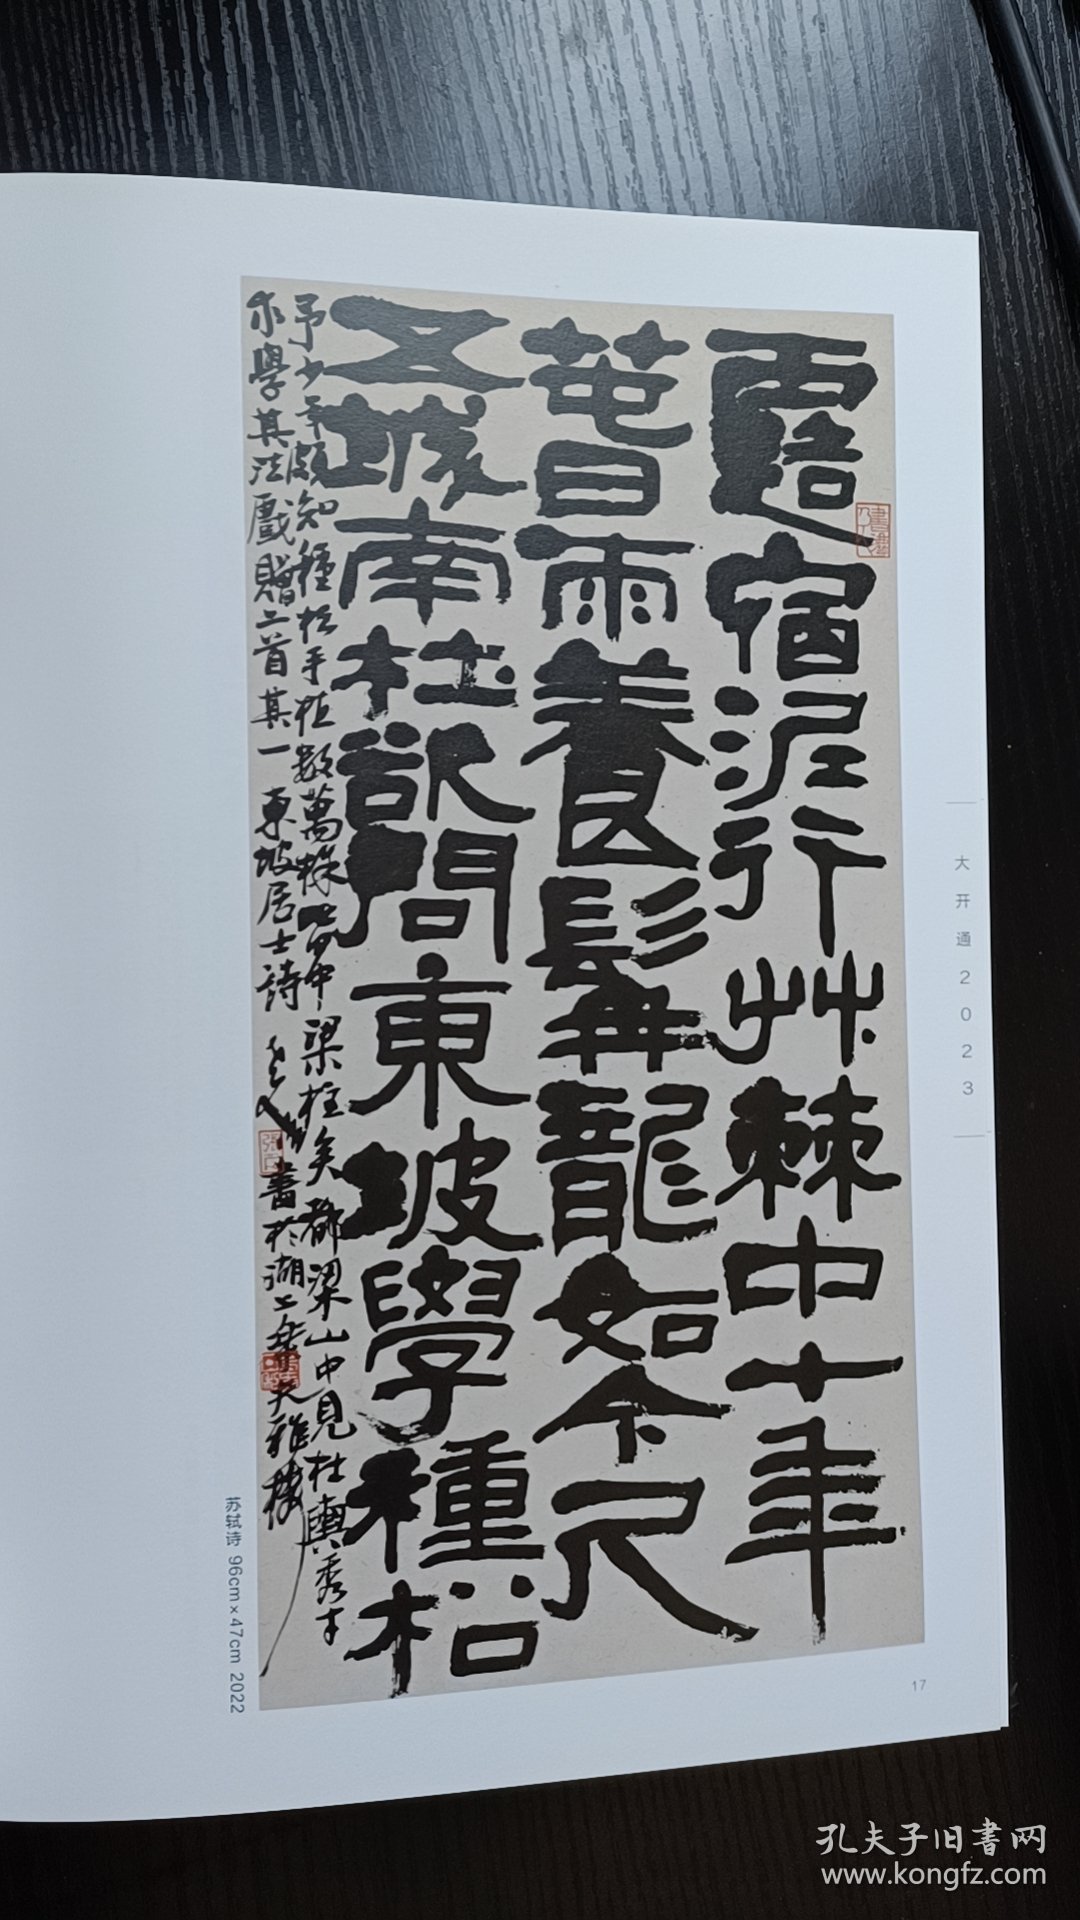 露宿泥行艸棘中十年
萅雨養髯龍如今尺
五城南杜欲問東坡學種松
予少年頗知種松手植數萬株皆中梁柱矣都梁山中見杜輿秀才
求學其法戲贈二首其一東坡居士詩 書於湖上
大开通2023
苏轼诗 96cm×47cm 2022
17
孔夫子旧書网
www.kongfz.com